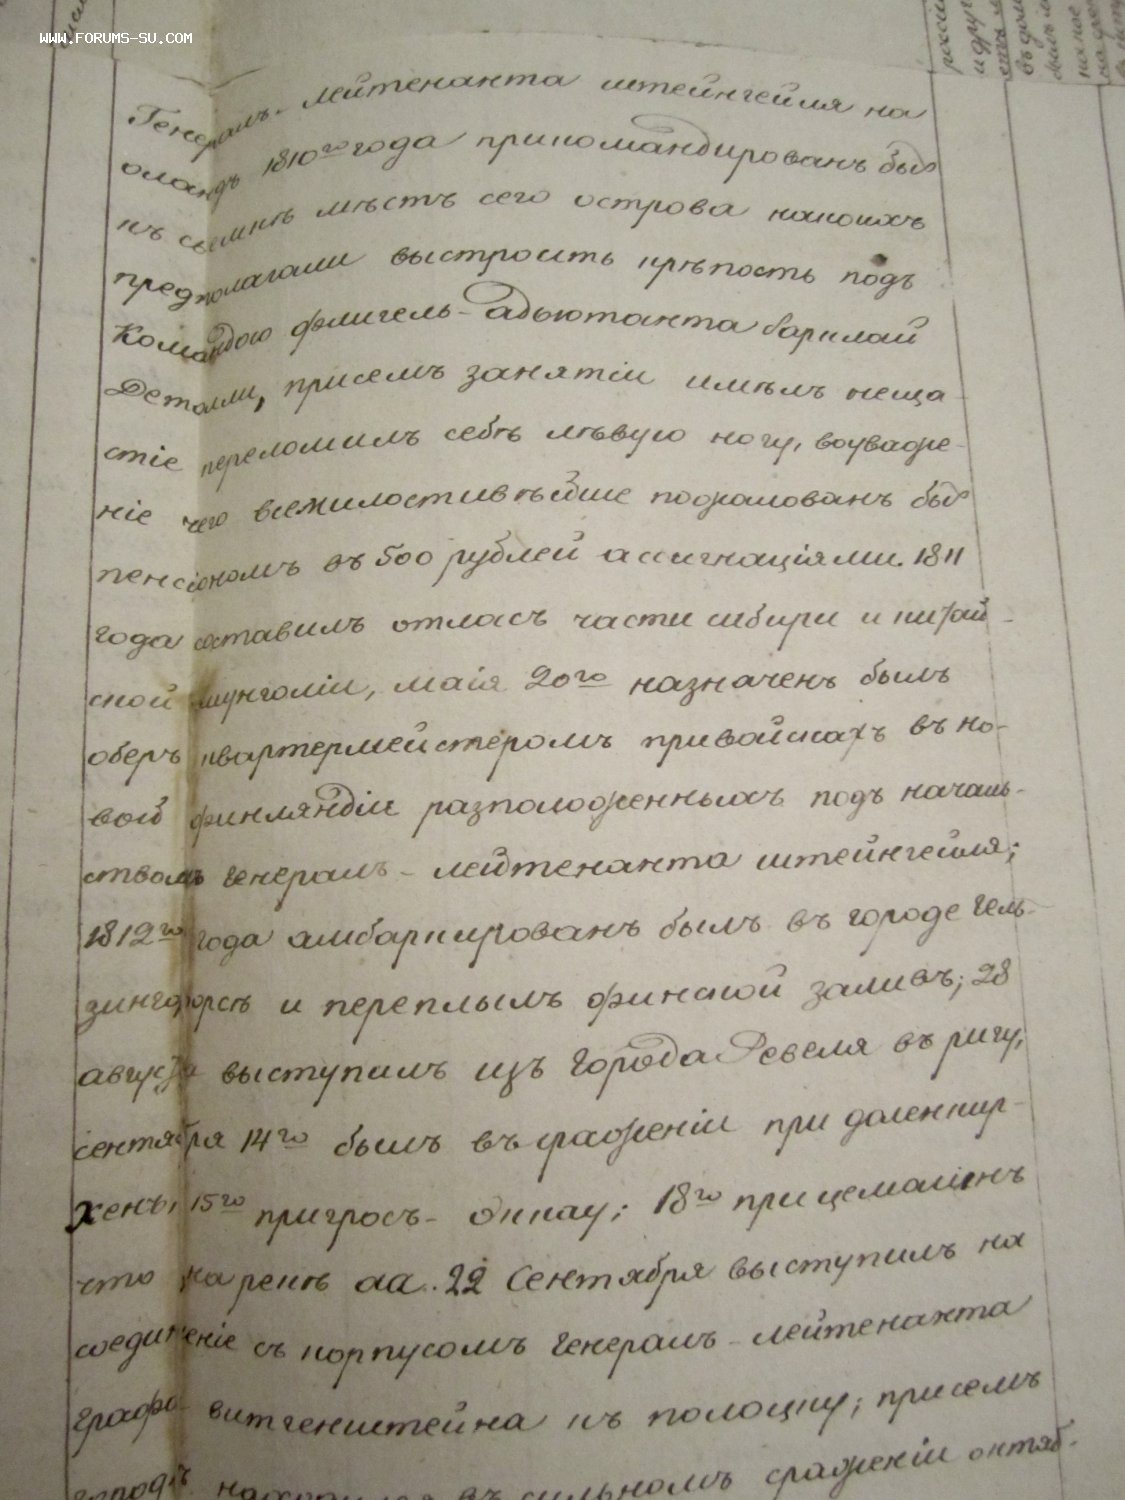 WWW.FORUMS-SU.COM
Генералъ-лейтенанта штейнгейля на
оландъ 1810го года прикомандированъ был
къ съемкѣ мѣстъ сего острова накоихъ
предполагали выстроить крѣпость подъ
Командою флигель-адьютанта барклай
Детолли, присемъ занятіи имѣлъ неща-
стіе переломилъ себѣ лѣвую ногу, воуваже-
ніе чего всемилостивѣйше пожалованъ был
пенсіономъ въ 500 рублей ассигнаціями. 1811
года составилъ отласъ части сибири и китай-
ской мунголіи, маія 20го назначенъ былъ
оберъ квартермейстеромъ привойскахъ въ но-
вой финляндіи разположенныхъ подъ началь-
ствомъ генералъ-лейтенанта штейнгейля;
1812го года амбаркированъ былъ въ городе гель-
зингфорсѣ и переплылъ финской заливъ; 28
августа выступилъ изъ города Ревеля въ ригу,
сентября 14го былъ въ сраженіи при даленкир-
хенъ, 15го пригросъ-эккау; 18го прицемалінъ
что на рекѣ аа. 22 Сентября выступилъ на
соединеніе съ корпусомъ генералъ-лейтенанта
графа витгенштейна къ полоцку; присемъ
городѣ находился въ сильномъ сраженіи октяб-
россій
и друг
въ дол